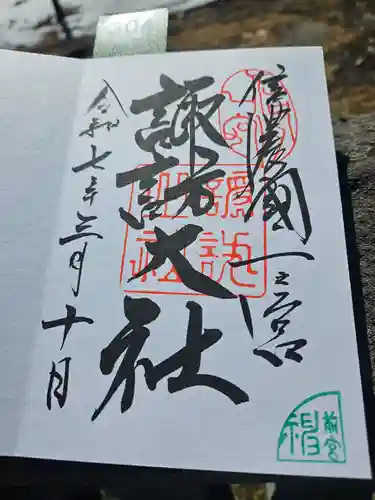 信濃國一之宮
諏訪大社
令和七年三月十日
前宮